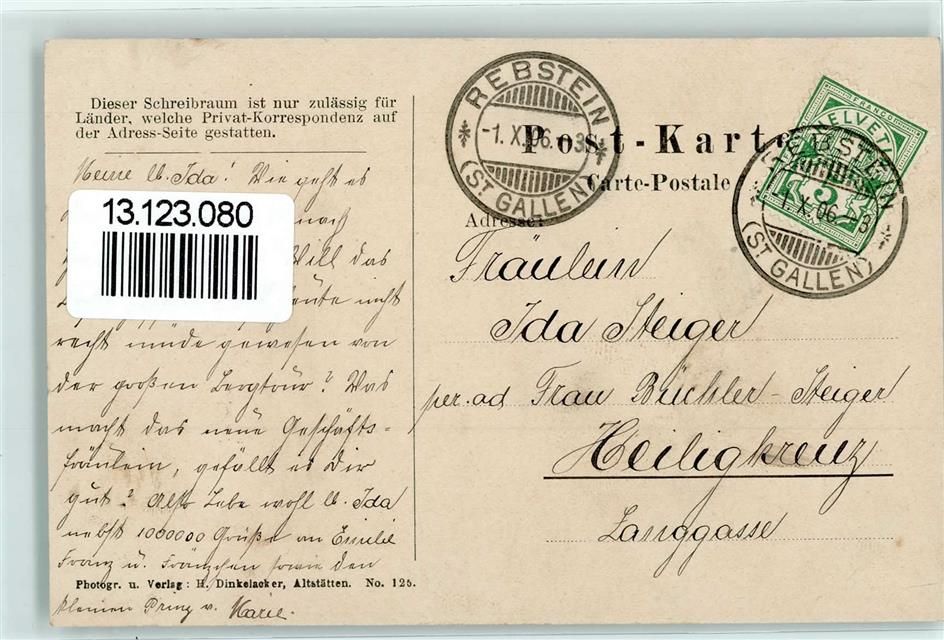 Dieser Schreibraum ist nur zulässig für
Länder, welche Privat-Korrespondenz auf
der Adress-Seite gestatten.
Meine lb. Ida! Wie geht es
13.123.080
nach
Will das
heute nicht
recht müde gewesen von
der großen Bergtour? Was
macht das neue Geschäfts-
fräulein, gefällt es Dir
gut? Also Lebe wohl lb. Ida
nebst 1000000 Grüße an Emilie
Franz u. Fränzchen sowie den
Photogr. u. Verlag: H. Dinkelacker, Altstätten. No. 125.
kleinen Prinz v. Marie.
REBSTEIN
-1.X.06.-3
(ST GALLEN)
Post-Karte
Carte-Postale
FRANCO
HELVETIA
5
REBSTEIN
1.X.06.-3
(ST GALLEN)
Adresse:
Fräulein
Ida Steiger
per. ad Frau Büchler-Steiger
Heiligkreuz
Langgasse